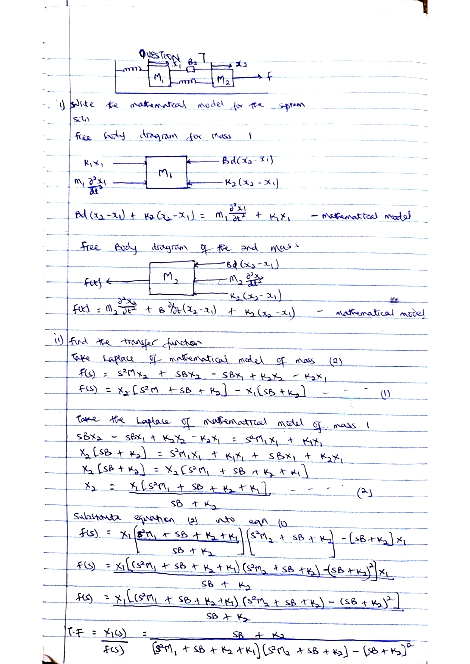 QUESTION 7
x₁ B₂ x₂
M₁ M₂ f
i) Write the mathematical model for the system
soln
free body diagram for mass 1
K₁x₁ Bd(x₂-x₁)
M₁
m₁ ∂²x₁/dt² K₂(x₂-x₁)
Bd(x₂-x₁) + K₂(x₂-x₁) = m₁ ∂²x₁/dt² + K₁x₁ - mathematical model
free Body diagram of the 2nd mass.
Bd(x₂-x₁)
f(t) M₂ M₂ ∂²x₂/dt²
K₂(x₂-x₁)
f(t) = M₂ ∂²x₂/dt² + B ∂/∂t(x₂-x₁) + K₂(x₂-x₁) - mathematical model
ii) find the transfer function
Take Laplace of mathematical model of mass (2)
F(s) = S²Mx₂ + SBx₂ - SBx₁ + K₂x₂ - K₂x₁
F(s) = x₂[S²M + SB + K₂] - x₁[SB + K₂] - - - (1)
Take the Laplace of mathematical model of mass 1
SBx₂ - SBx₁ + K₂x₂ - K₂x₁ = S²M₁x₁ + K₁x₁
x₂[SB + K₂] = S²M₁x₁ + K₁x₁ + SBx₁ + K₂x₁
x₂[SB + K₂] = x₁[S²M₁ + SB + K₂ + K₁]
x₂ = x₁[S²M₁ + SB + K₂ + K₁] - - - - (2)
SB + K₂
Substitute equation (2) into eqn (1)
F(s) = x₁[S²M₁ + SB + K₂ + K₁] [S²M₂ + SB + K₂] - [SB + K₂]x₁
SB + K₂
F(s) = x₁[(S²M₁ + SB + K₂ + K₁)(S²M₂ + SB + K₂) - (SB + K₂)²]x₁
SB + K₂
F(s) = x₁[(S²M₁ + SB + K₂ + K₁)(S²M₂ + SB + K₂) - (SB + K₂)²]
SB + K₂
T.F = X₁(s) = SB + K₂
F(s) [S²M₁ + SB + K₂ + K₁][S²M₂ + SB + K₂] - [SB + K₂]²